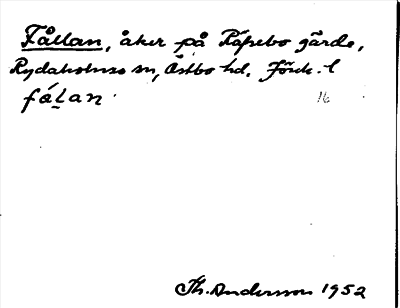 Fållan, åker på Råpebo gärde,
Rydaholms sn, Östbo hd. Jönk. l
fálan
16
Th. Andersson 1952